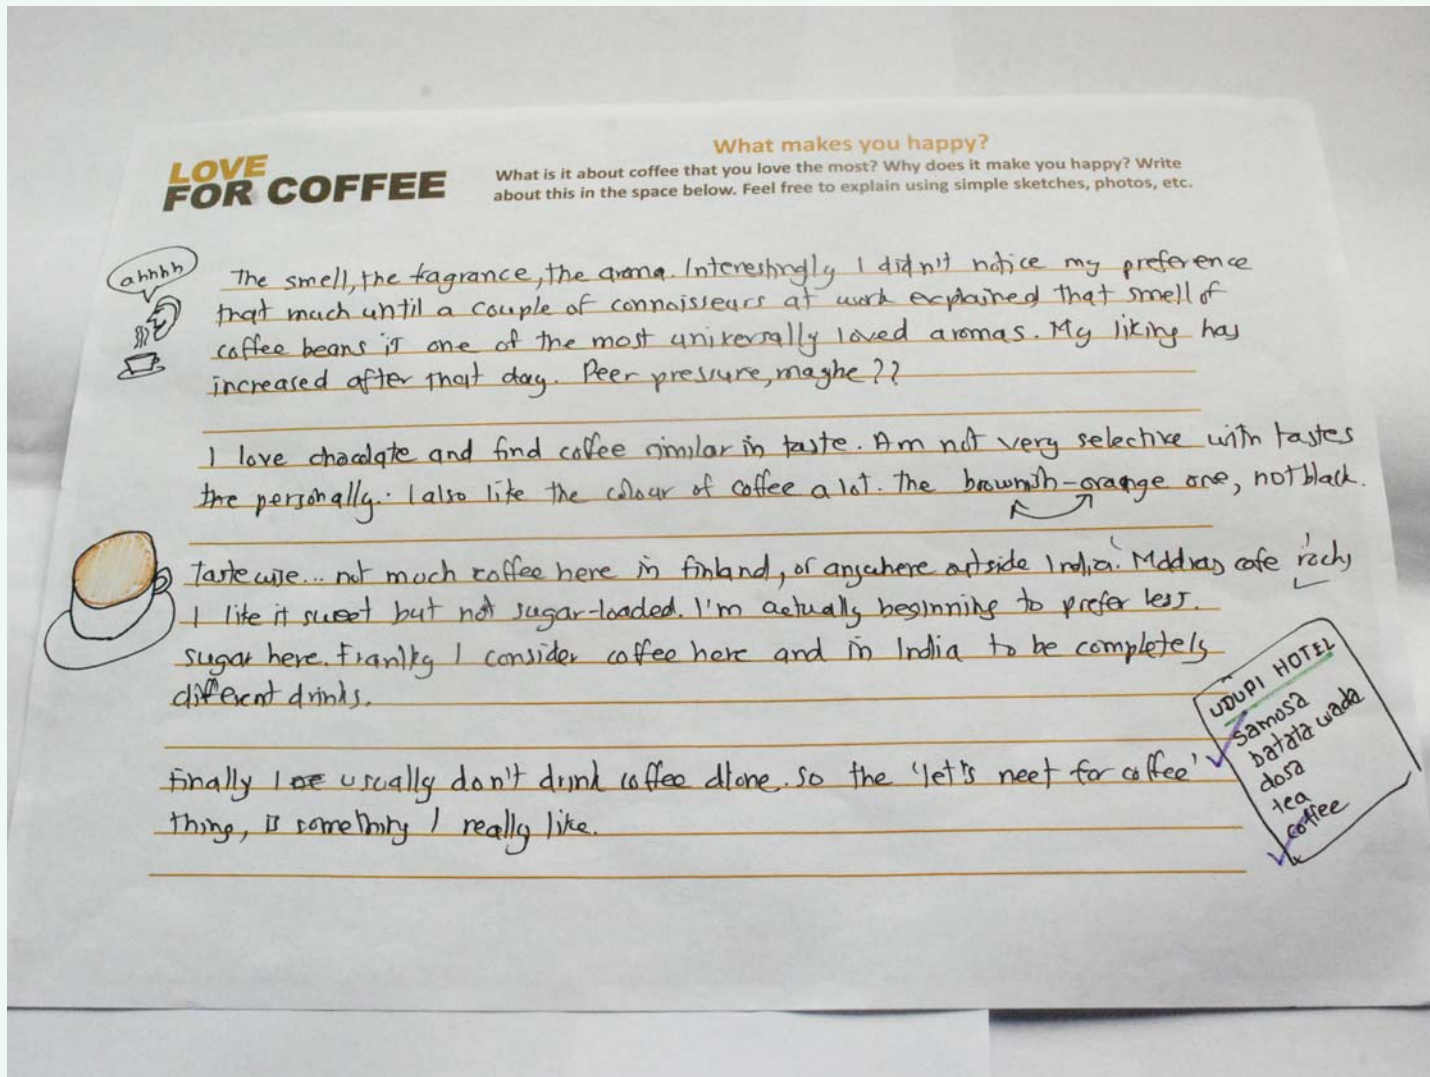 LOVE
FOR COFFEE
What makes you happy?
What is it about coffee that you love the most? Why does it make you happy? Write
about this in the space below. Feel free to explain using simple sketches, photos, etc.
ahhhh
The smell, the fragrance, the aroma. Interestingly I didn't notice my preference
that much until a couple of connoisseurs at work explained that smell of
coffee beans is one of the most universally loved aromas. My liking has
increased after that day. Peer pressure, maybe??
I love chocolate and find coffee similar in taste. Am not very selective with tastes
personally. I also like the colour of coffee a lot. The brownish-orange one, not black.
Tastewise... not much coffee here in finland, or anywhere outside India. Madras cafe rocks
I like it sweet but not sugar-loaded. I'm actually beginning to prefer less.
sugar here. Frankly I consider coffee here and in India to be completely
different drinks.
Finally I usually don't drink coffee alone. So the 'let's meet for coffee'
thing, is something I really like.
UDUPI HOTEL
samosa
batata wada
dosa
tea
coffee